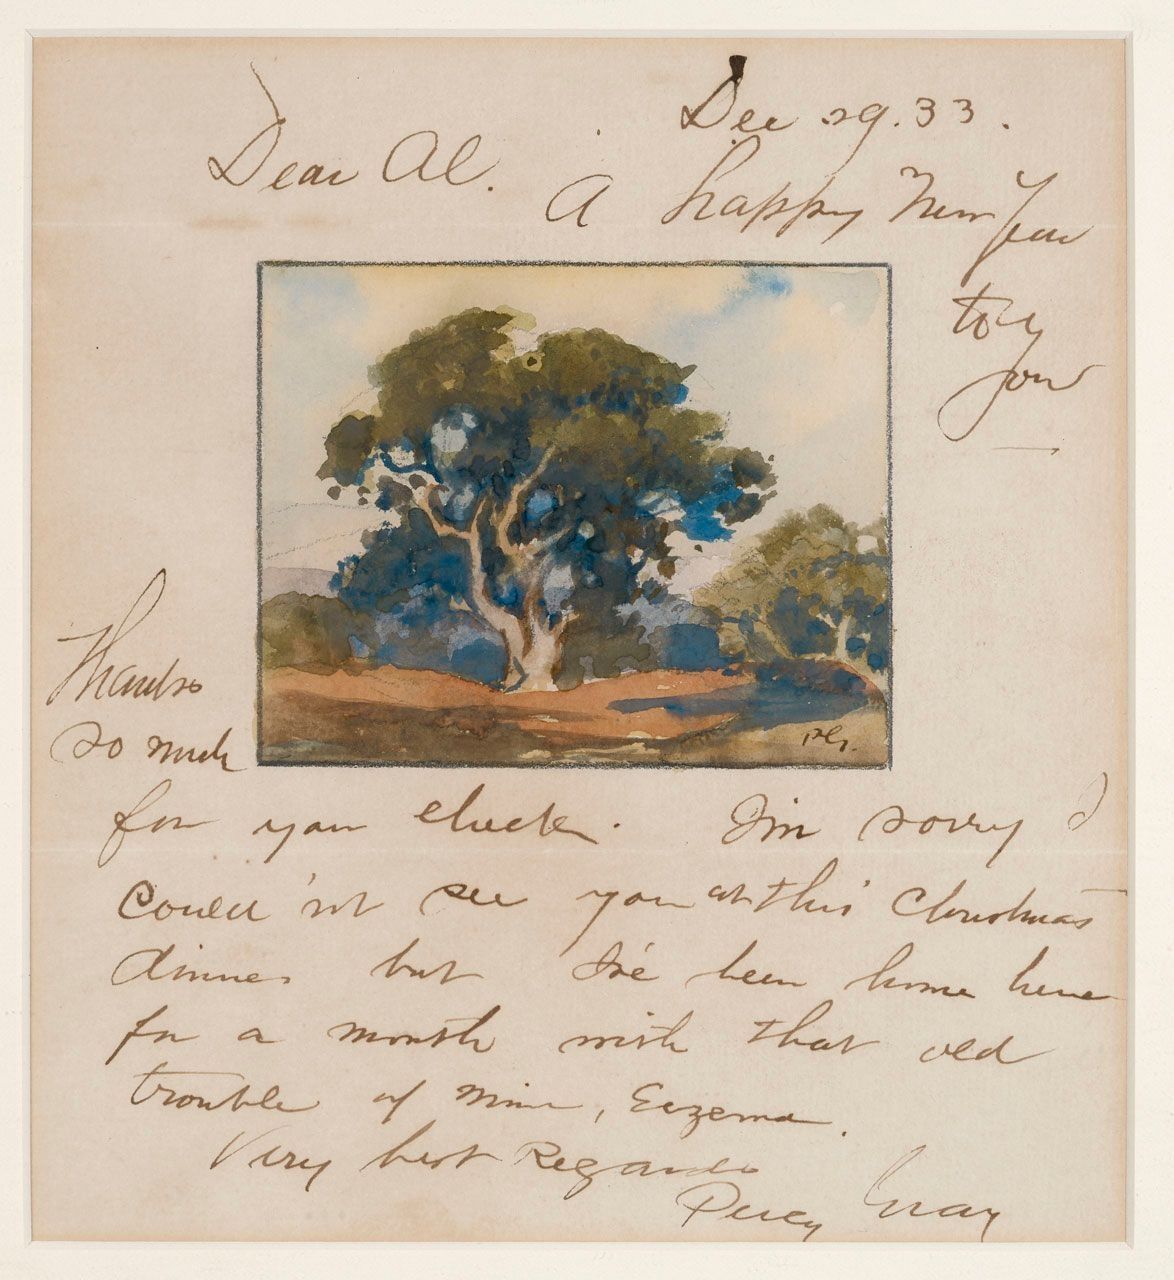 Dec 29. 33.
Dear Al.
A happy New Year
to
you
Thanks
so much
for your check. I'm sorry I
could'nt see you at this Christmas
dinner but I've been home here
for a month with that old
trouble of mine, Eczema.
Very best Regards
Percy Gray
PG.